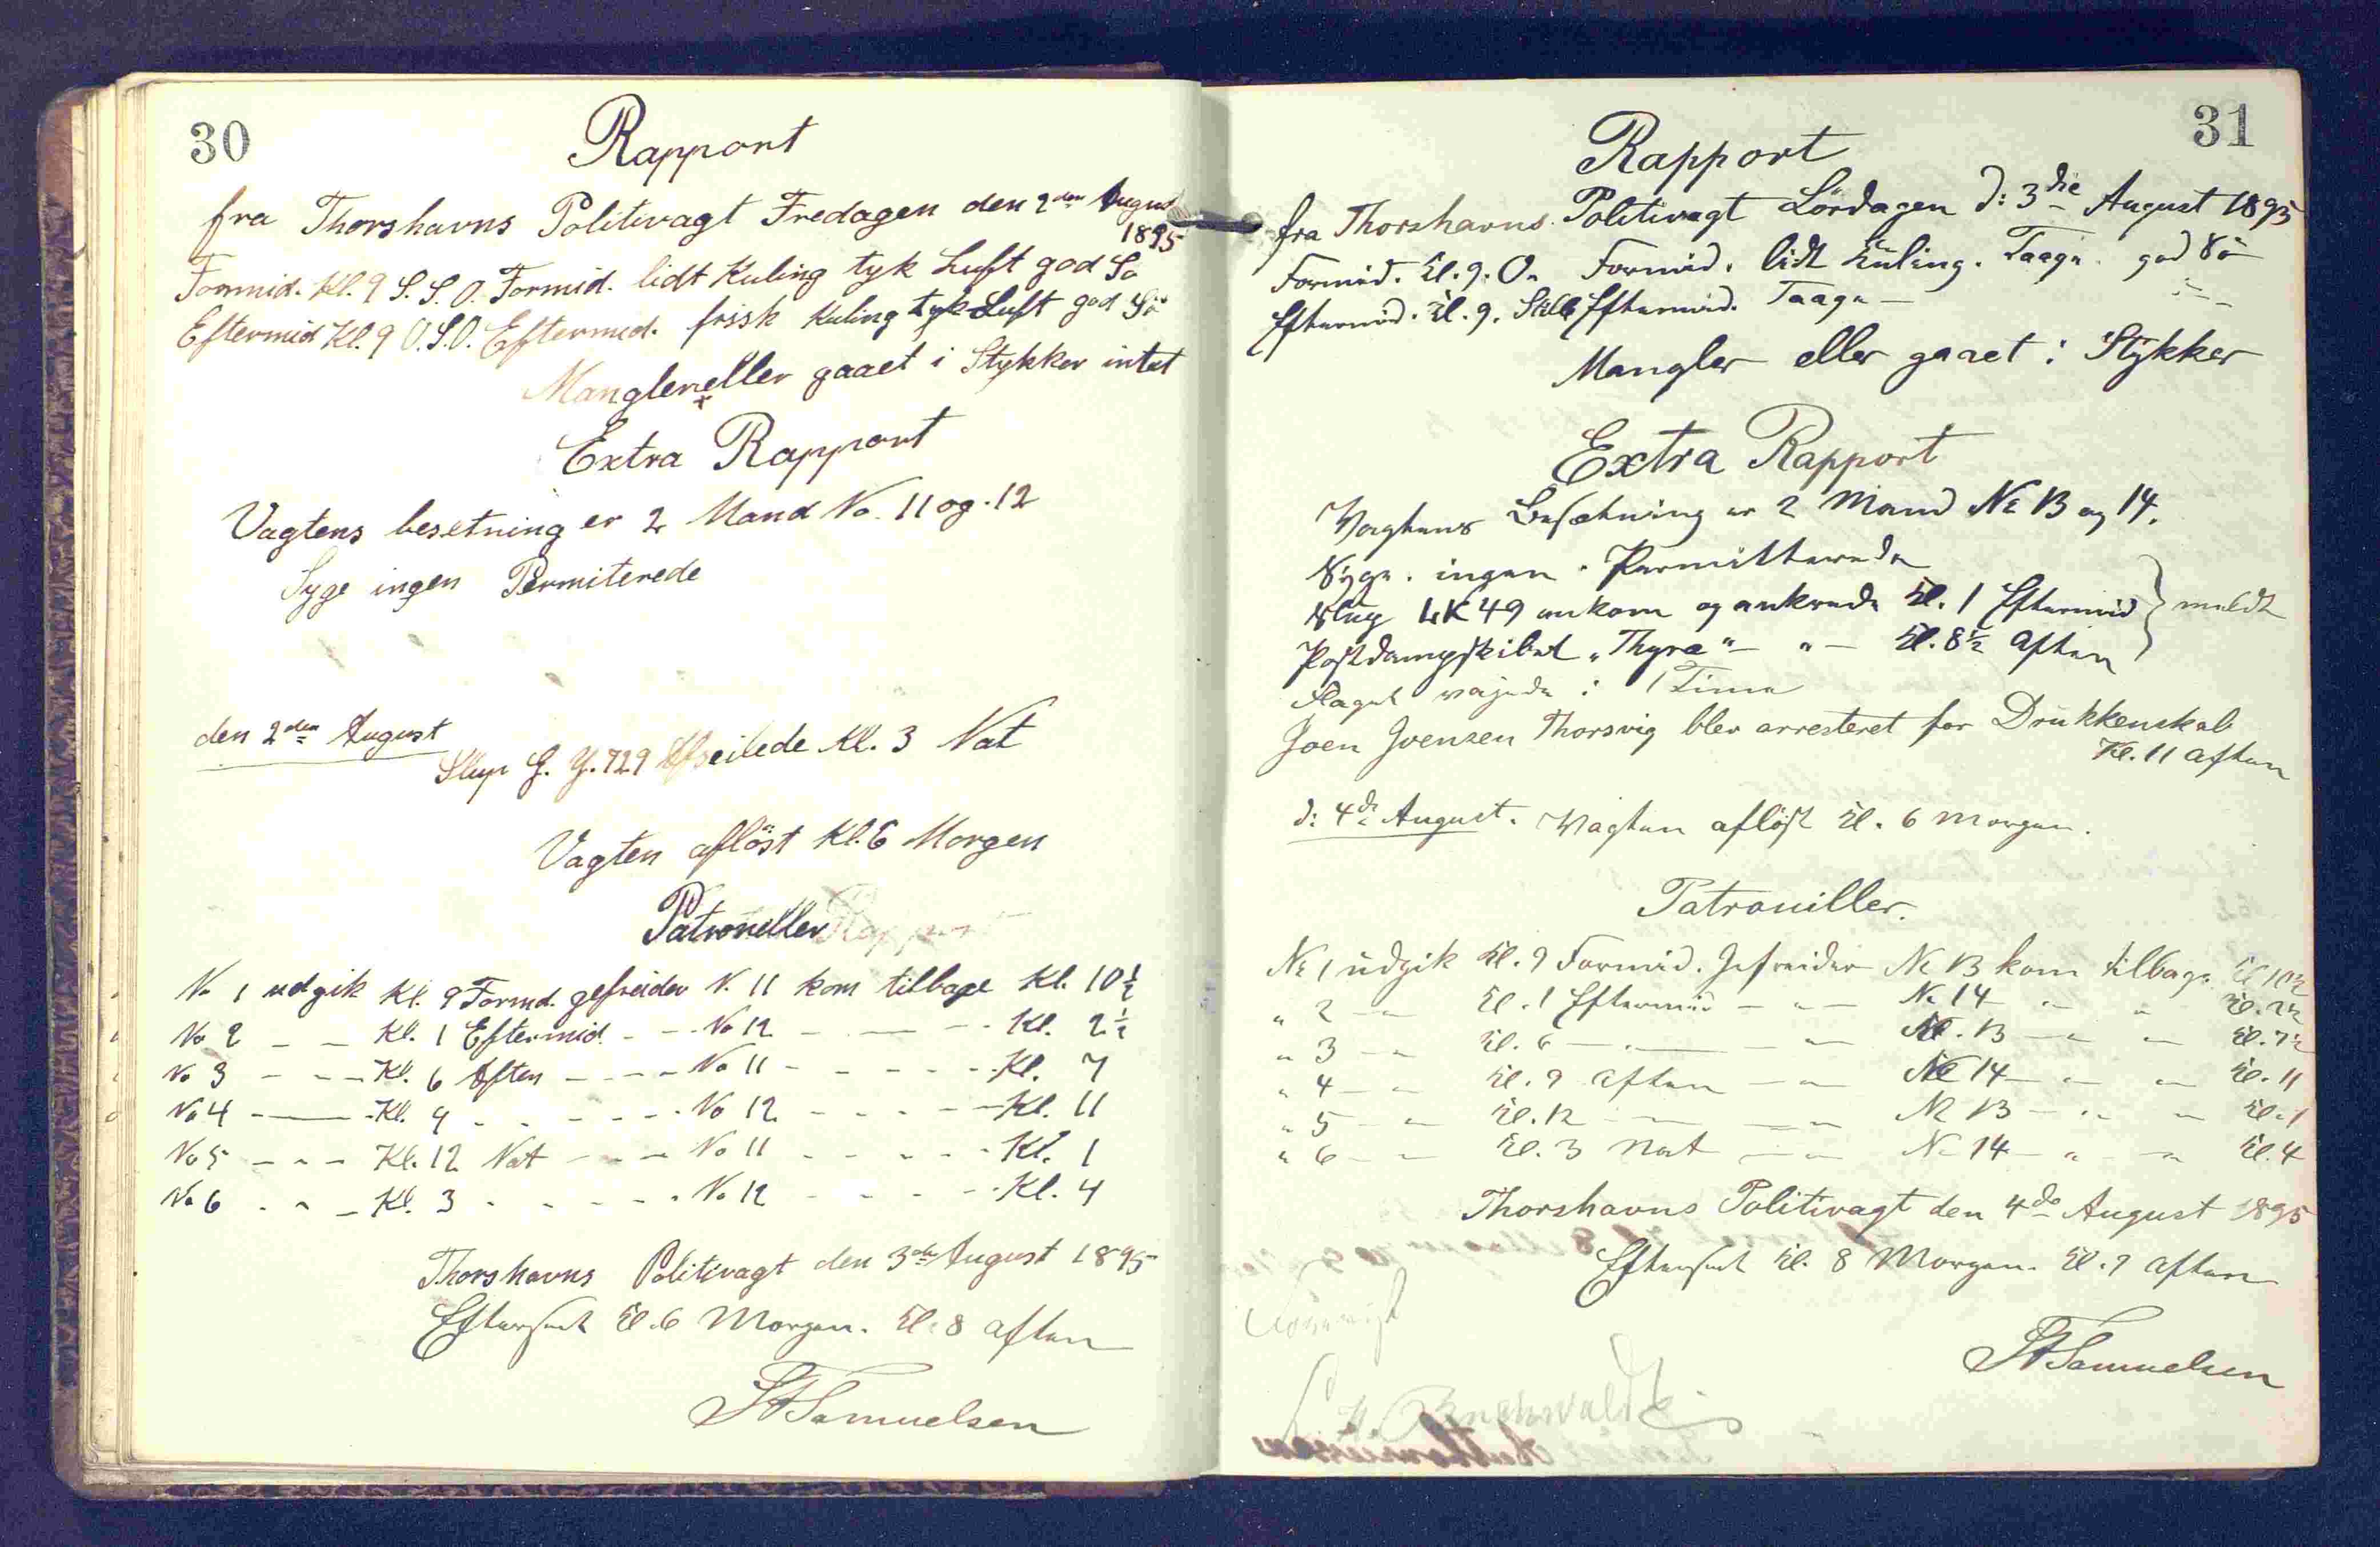 30
Rapport
fra Thorshavns Politivagt Fredagen den 2den August
1895
Formid. Kl. 9 S.S.O. Formid. lidt Kuling tyk Luft god Sö
Eftermid Kl. 9 O.S.O. Eftermid. frisk Kuling tyk Luft god Sö
Mangler eller gaaet i Stykker intet
Extra Rapport
Vagtens besetning er 2 Mand No. 11 og. 12
Syge ingen Permiterede
den 2den August
Slup G. Y. 729 Afseilede Kl. 3 Nat
Vagten aflöst Kl. 6 Morgen
Patroneller Rapport
No 1 udgik Kl. 9 Formd. gefreider N. 11 kom tilbage Kl. 10 ½
No 2 - - Kl. 1 Eftermid - - No 12 - - - Kl. 2 ½
No 3 - - - Kl. 6 Aften - - - No 11 - - - - - Kl. 7
No 4 - - Kl. 9 - - - - - No 12 - - - - Kl. 11
No 5 - - - Kl. 12 Nat - - - No 11 - - - - - Kl. 1
No 6 - - - Kl. 3 - - - - - No 12 - - - - Kl. 4
Thorshavns Politivagt den 3die August 1895
Efterseet Kl. 6 Morgen. Kl. 8 Aften
Samuelsen
31
Rapport
fra Thorshavns Politivagt Lördagen d: 3die August 1895
Formid. Kl. 9. O. Formid. lidt Kuling. Taage. god Sö
Eftermid. Kl. 9. Stille Eftermid. Taage —
Mangler eller gaaet i Stykker
Extra Rapport
Vagtens Besætning er 2 Mand No 13 og 14.
Syge. ingen. Permitterede
Slup LK 49 ankom og ankrede Kl. 1 Eftermid } meldt
Postdampskibet „Thyra" — „ — Kl. 8½ Aften
Flaget vajede i 1 Time
Joen Joensen Thorsvig blev arresteret for Drukkenskab
Kl. 11 Aften
d: 4de August. Vagten aflöst Kl. 6 Morgen.
Patrouiller.
No 1 udgik Kl. 9 Formid. Gefreider No 13 kom tilbage Kl 10½
" 2 - " Kl. 1 Eftermid - " - No 14 - " - " Kl. 2½
" 3 - " Kl. 6 - " - - " No. 13 - " - Kl. 7½
" 4 - " Kl. 9 Aften - " No 14 - " - " Kl. 11
" 5 - " Kl. 12 - - " No 13 - " - Kl. 1
" 6 - " Kl. 3 Nat - " No 14 - " - " Kl. 4
Thorshavns Politivagt den 4de August 1895
Efterseet Kl. 8 Morgen. Kl. 9 Aften
Samuelsen